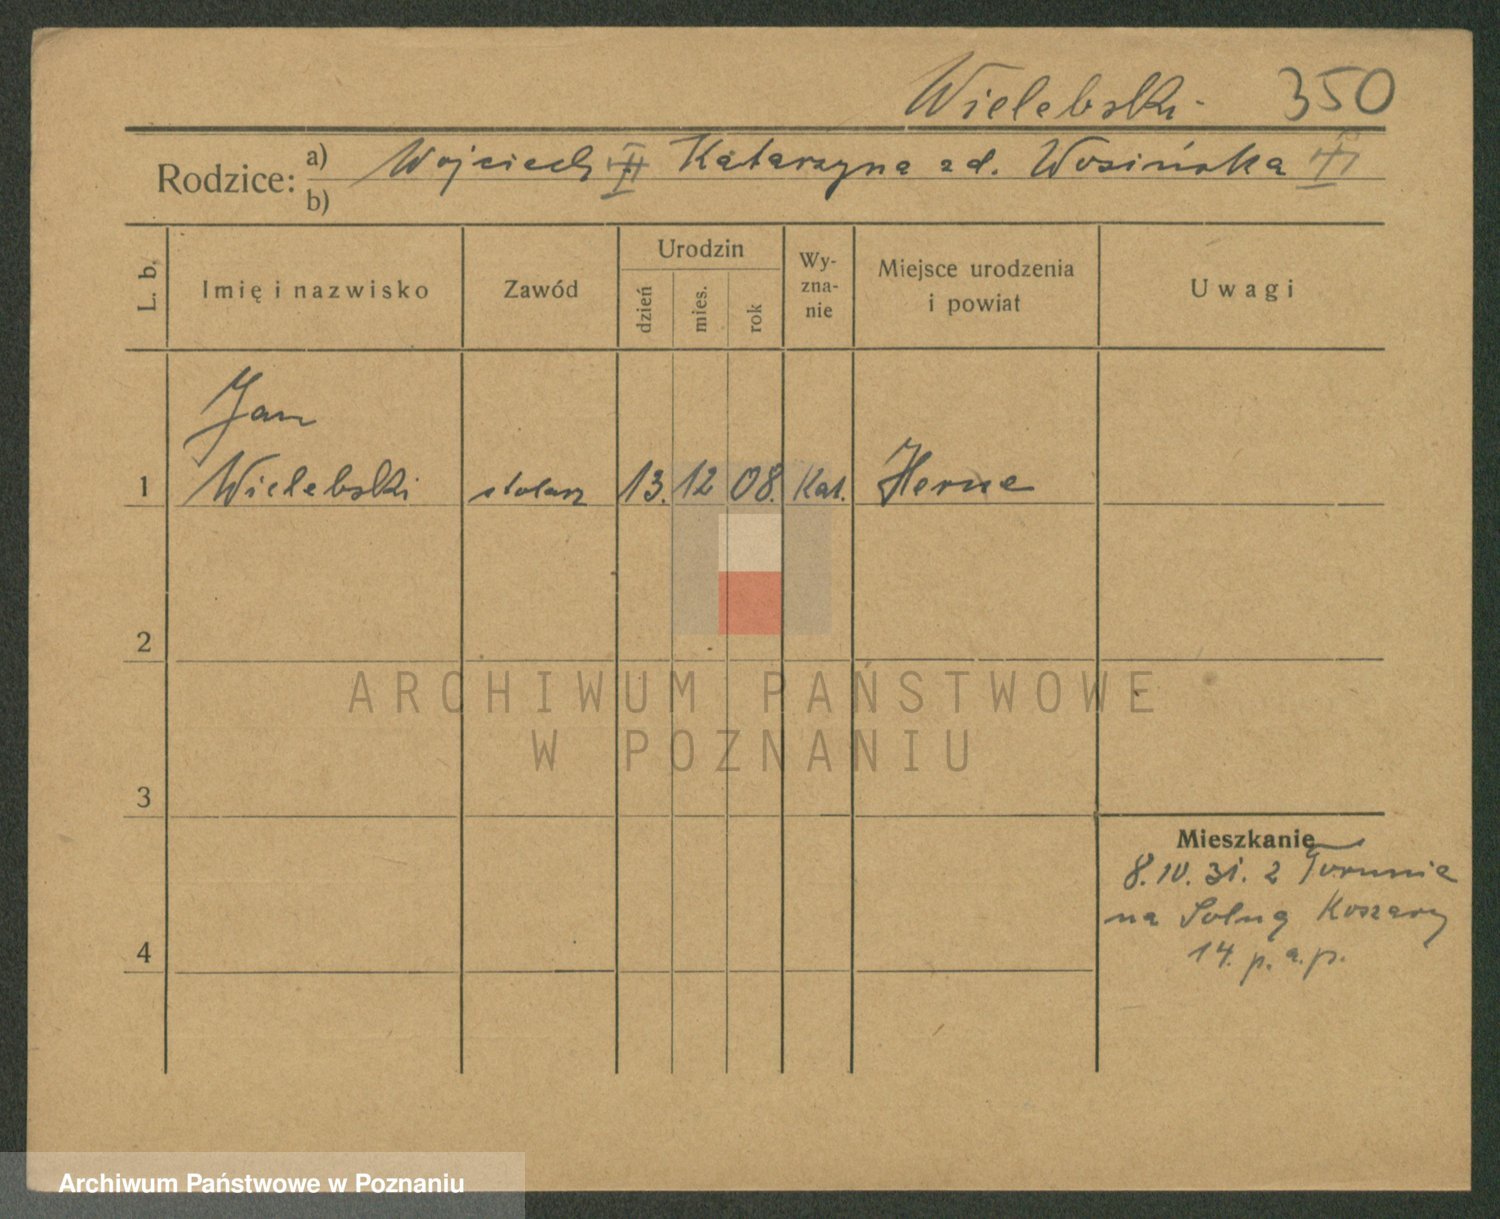 Wielebski 350
Rodzice: a) Wojciech Katarzyna zd. Wosińska
b)
L. b. Imię i nazwisko Zawód Urodzin dzień mies. rok Wy-zna-nie Miejsce urodzenia i powiat Uwagi
Jan
1 Wielebski stolarz 13. 12 08. Kat. Herne
2
ARCHIWUM PAŃSTWOWE
W POZNANIU
3
Mieszkanie
8.IV.31. z Torunia
na Solną Koszary
4
14. p. a. p.
Archiwum Państwowe w Poznaniu